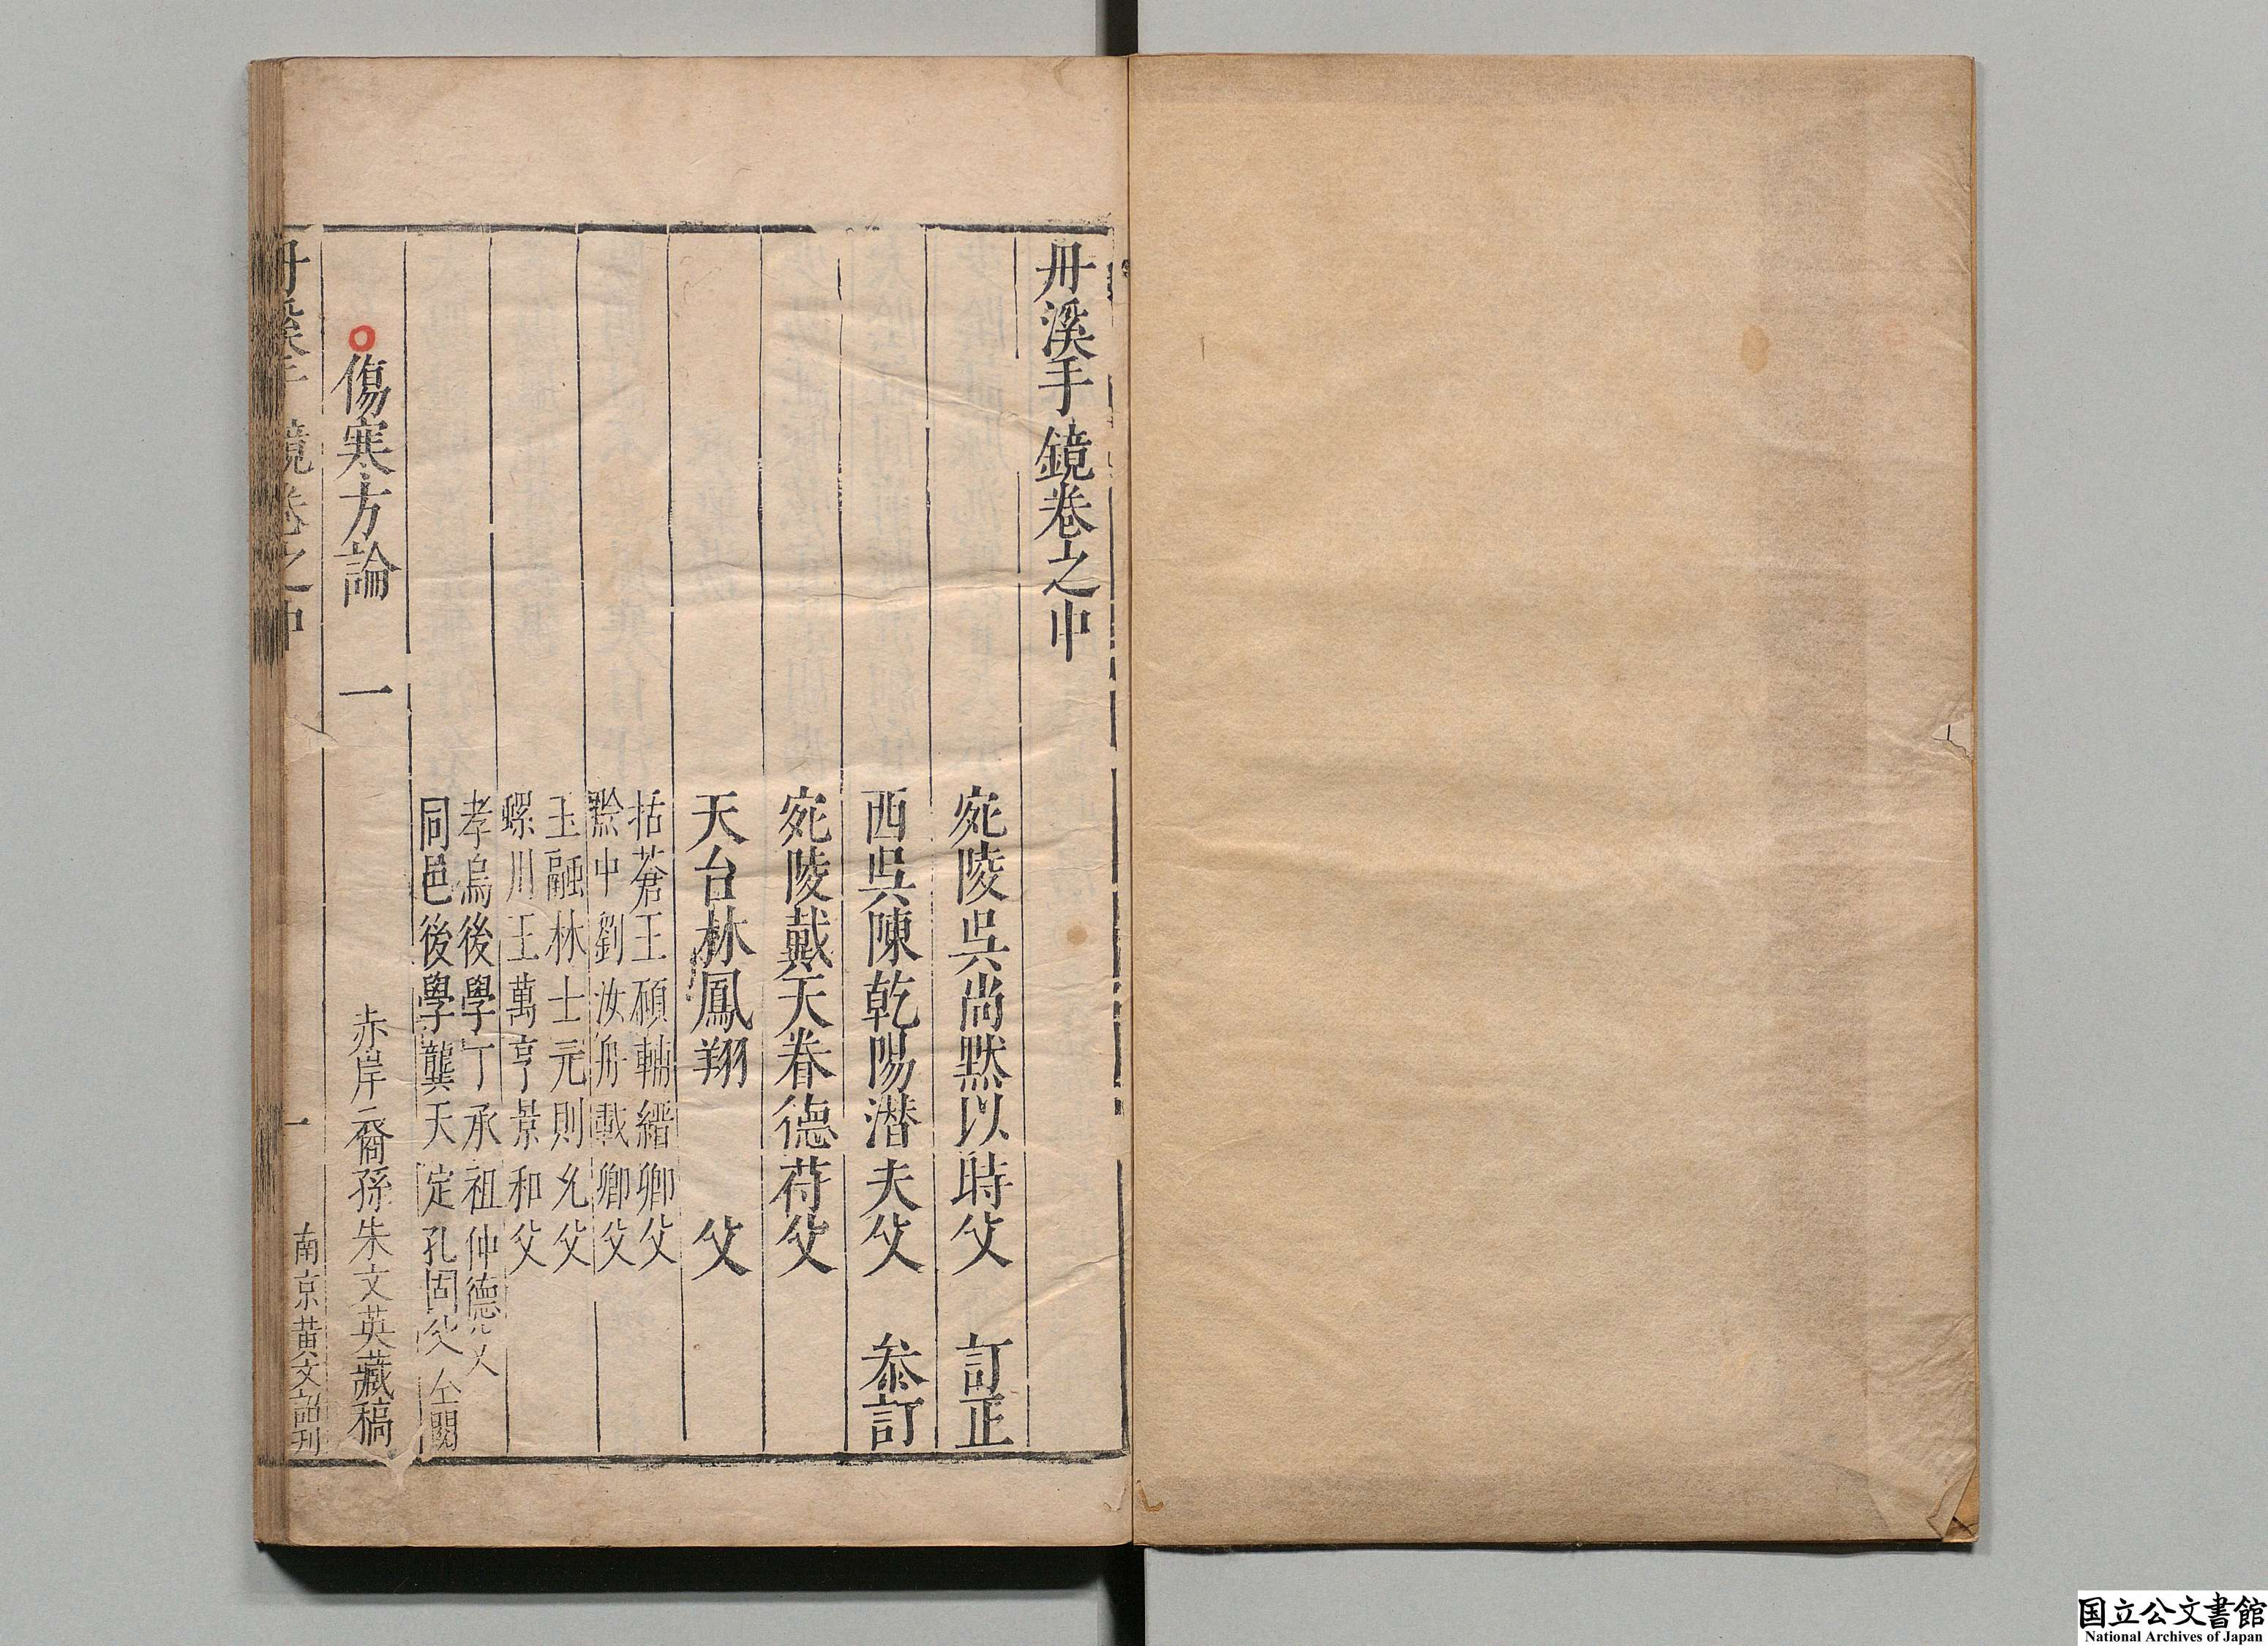 丹溪手鏡卷之中
宛陵吳尚黙以時父　訂正
西吳陳乾陽潛夫父　叅訂
宛陵戴天眷德苻父
天台林鳳翔　父
括蒼王碩輔縉卿父
黔中劉汝舟載卿父
玉融林士元則允父
螺川王萬亨景和父
孝烏後學丁承祖仲德父
同邑後學龔天定孔固父　仝閱
赤岸裔孫朱文英藏稿
傷寒方論　一
丹溪手鏡卷之中　一　南京黃文詔刊
国立公文書館
National Archives of Japan